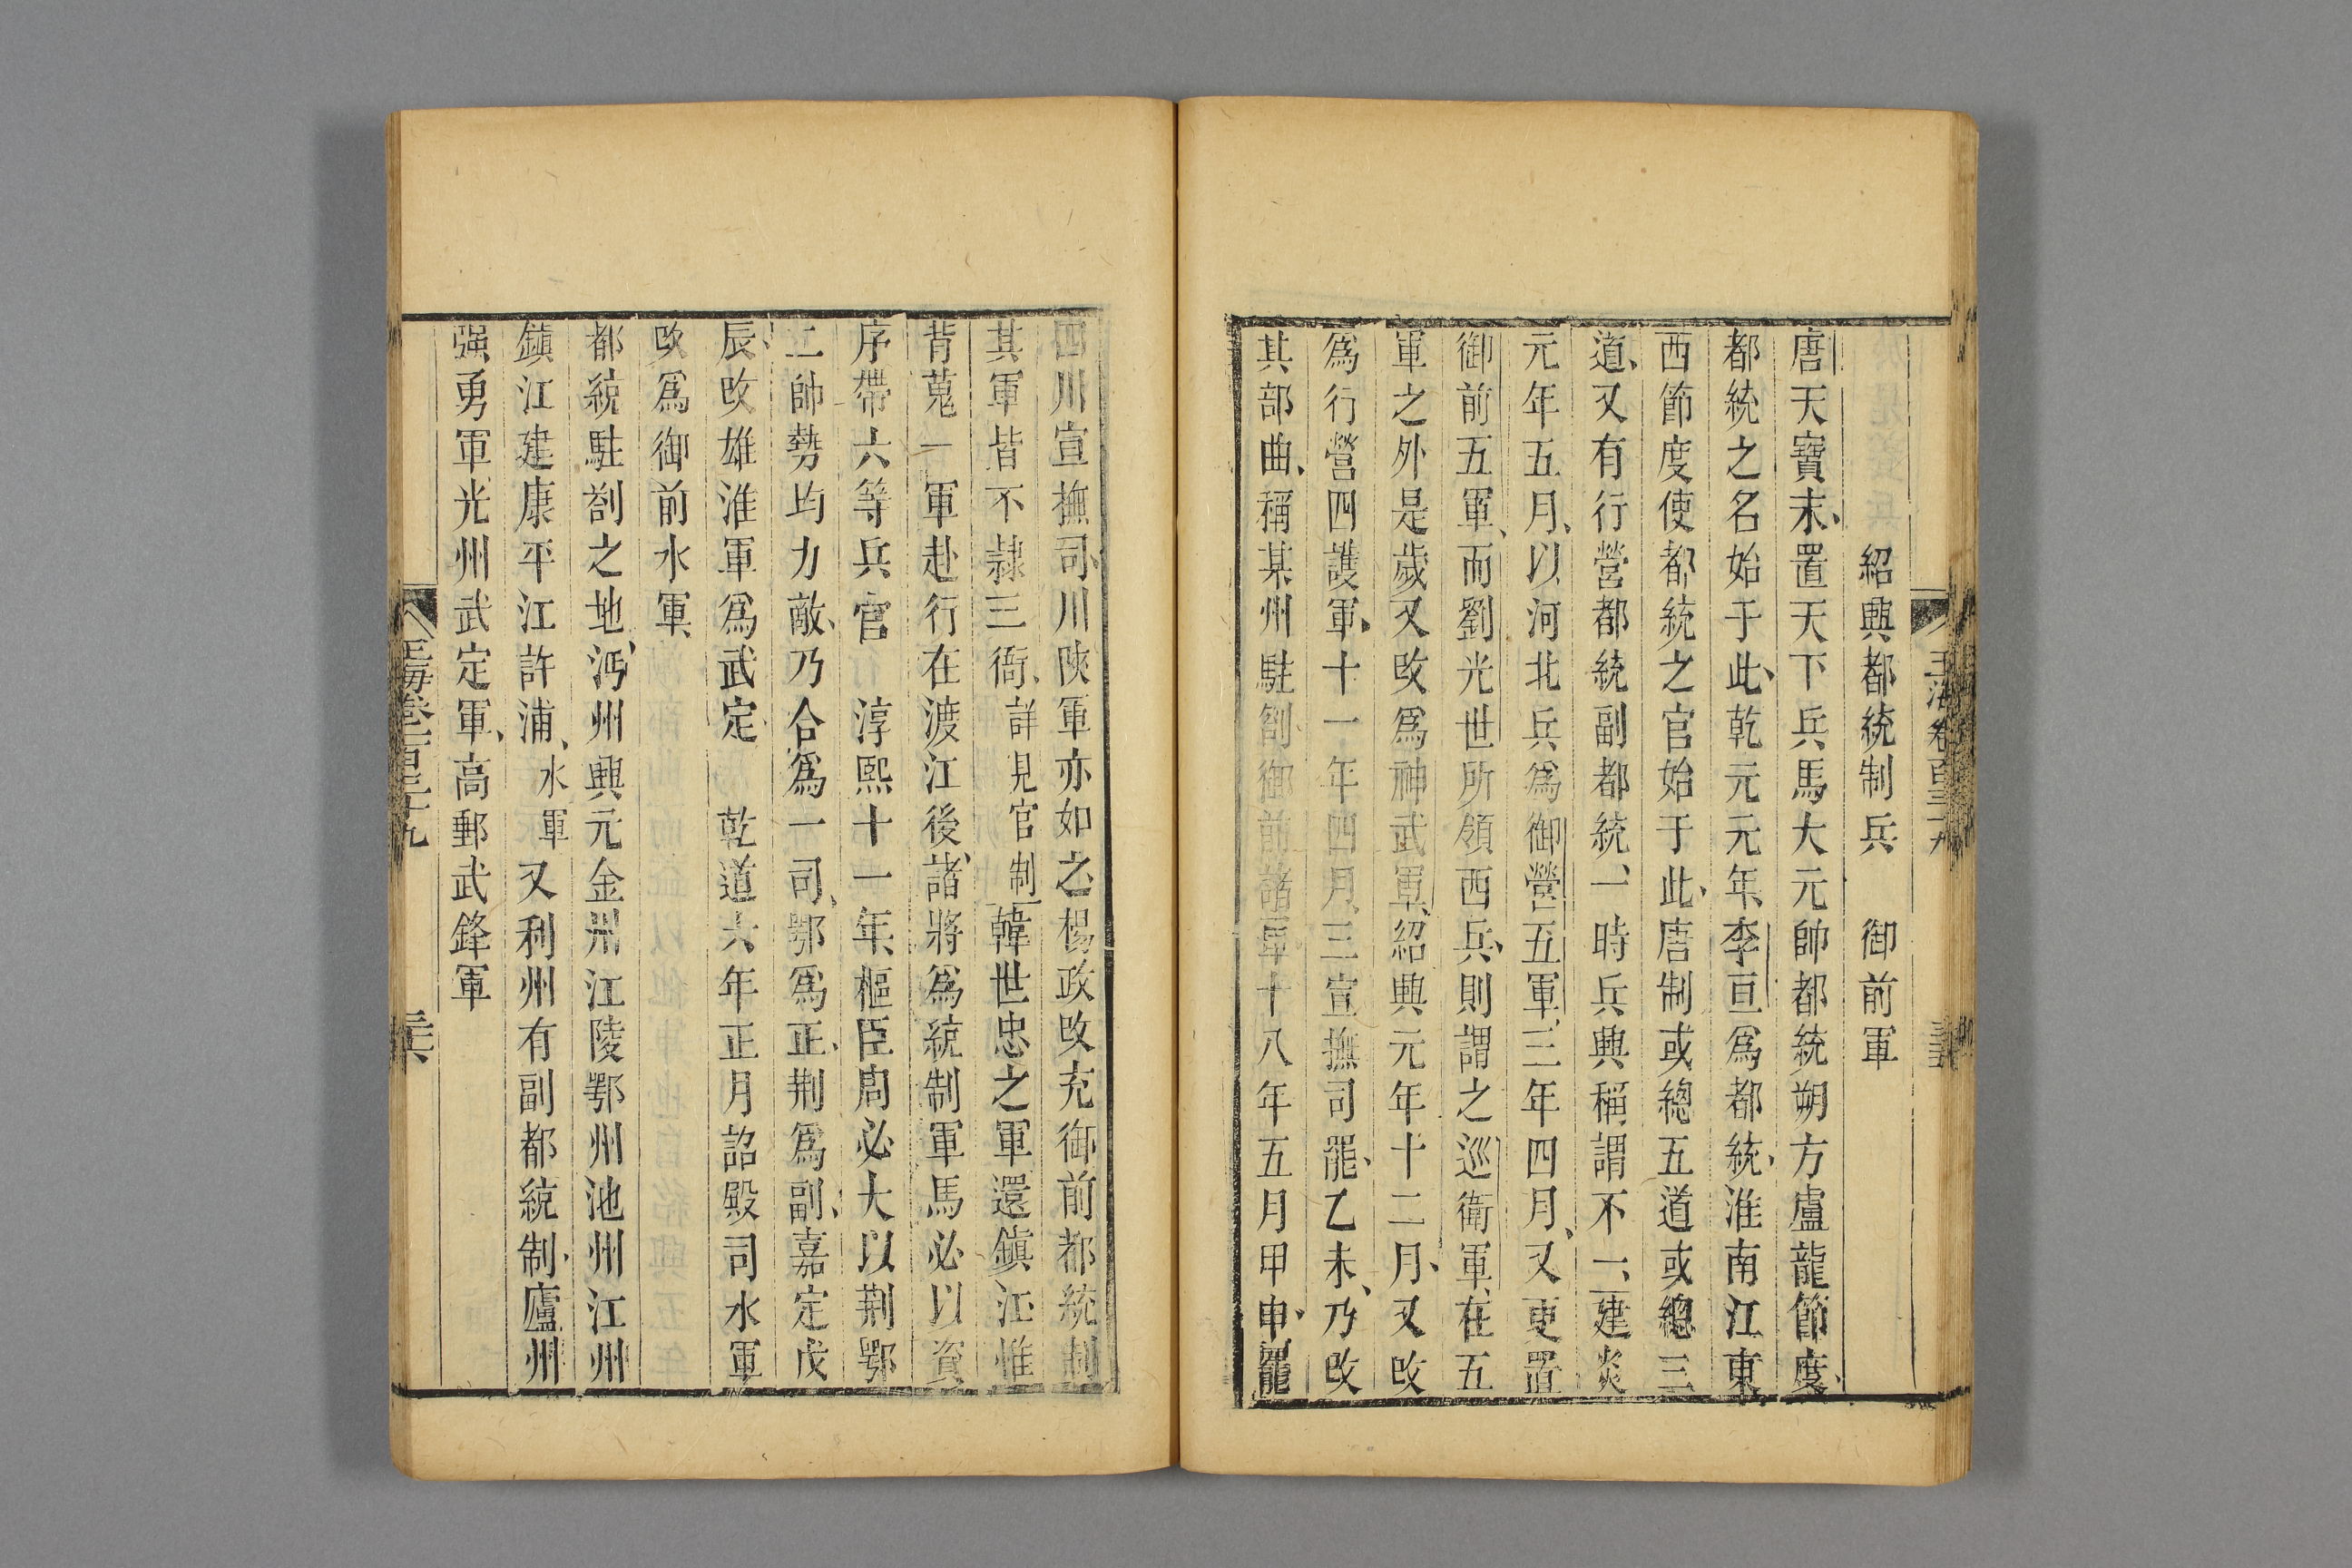 紹興都統制兵　御前軍
唐天寶末、置天下兵馬大元帥都統朔方盧龍節度、
都統之名始于此、乾元元年、李亘爲都統、淮南江東、
西節度使都統之官始于此、唐制或總五道或總三
道、又有行營都統副都統、一時兵興稱謂不一、建炎
元年五月、以河北兵爲御營五軍、三年四月、又更置
御前五軍、而劉光世所領西兵、則謂之巡衛軍、在五
軍之外是歲又改爲神武軍、紹興元年十二月、又改
爲行營四護軍、十一年四月、三宣撫司罷、乙未、乃改
其部曲、稱某州駐劄御前諸軍十八年五月甲申、罷
四川宣撫司、川陝軍亦如之、楊政改充御前都統制
其軍皆不隷三衙、詳見官制韓世忠之軍還鎮江、惟
背嵬一軍赴行在渡江後、諸將爲統制軍馬必以資
序帶六等兵官　淳熙十一年、樞臣周必大以荆鄂
二帥勢均力敵、乃合爲一司、鄂爲正、荆爲副、嘉定戊
辰、改雄淮軍爲武定、　乾道六年正月詔殿司水軍
改爲御前水軍、
都統駐劄之地、沔州興元金州江陵鄂州池州江州
鎮江建康平江許浦、水軍又利州有副都統制、廬州
强勇軍光州武定軍、高郵武鋒軍
玉海卷一百三十九